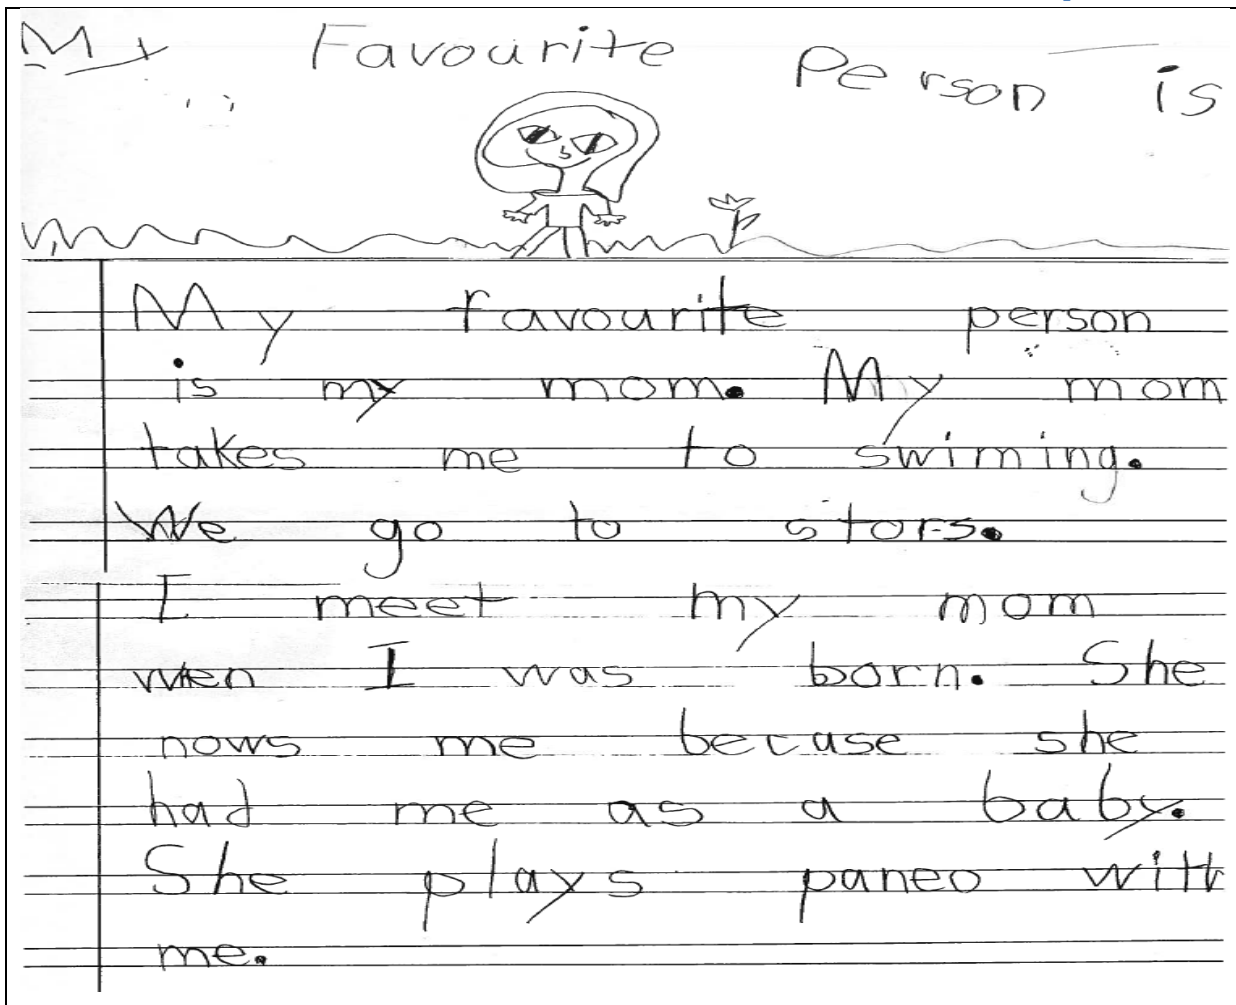 My Favourite Person is
My favourite person
is my mom. My mom
takes me to swiming.
We go to stors.
I meet my mom
when I was born. She
nows me becuase she
had me as a baby.
She plays paneo with
me.